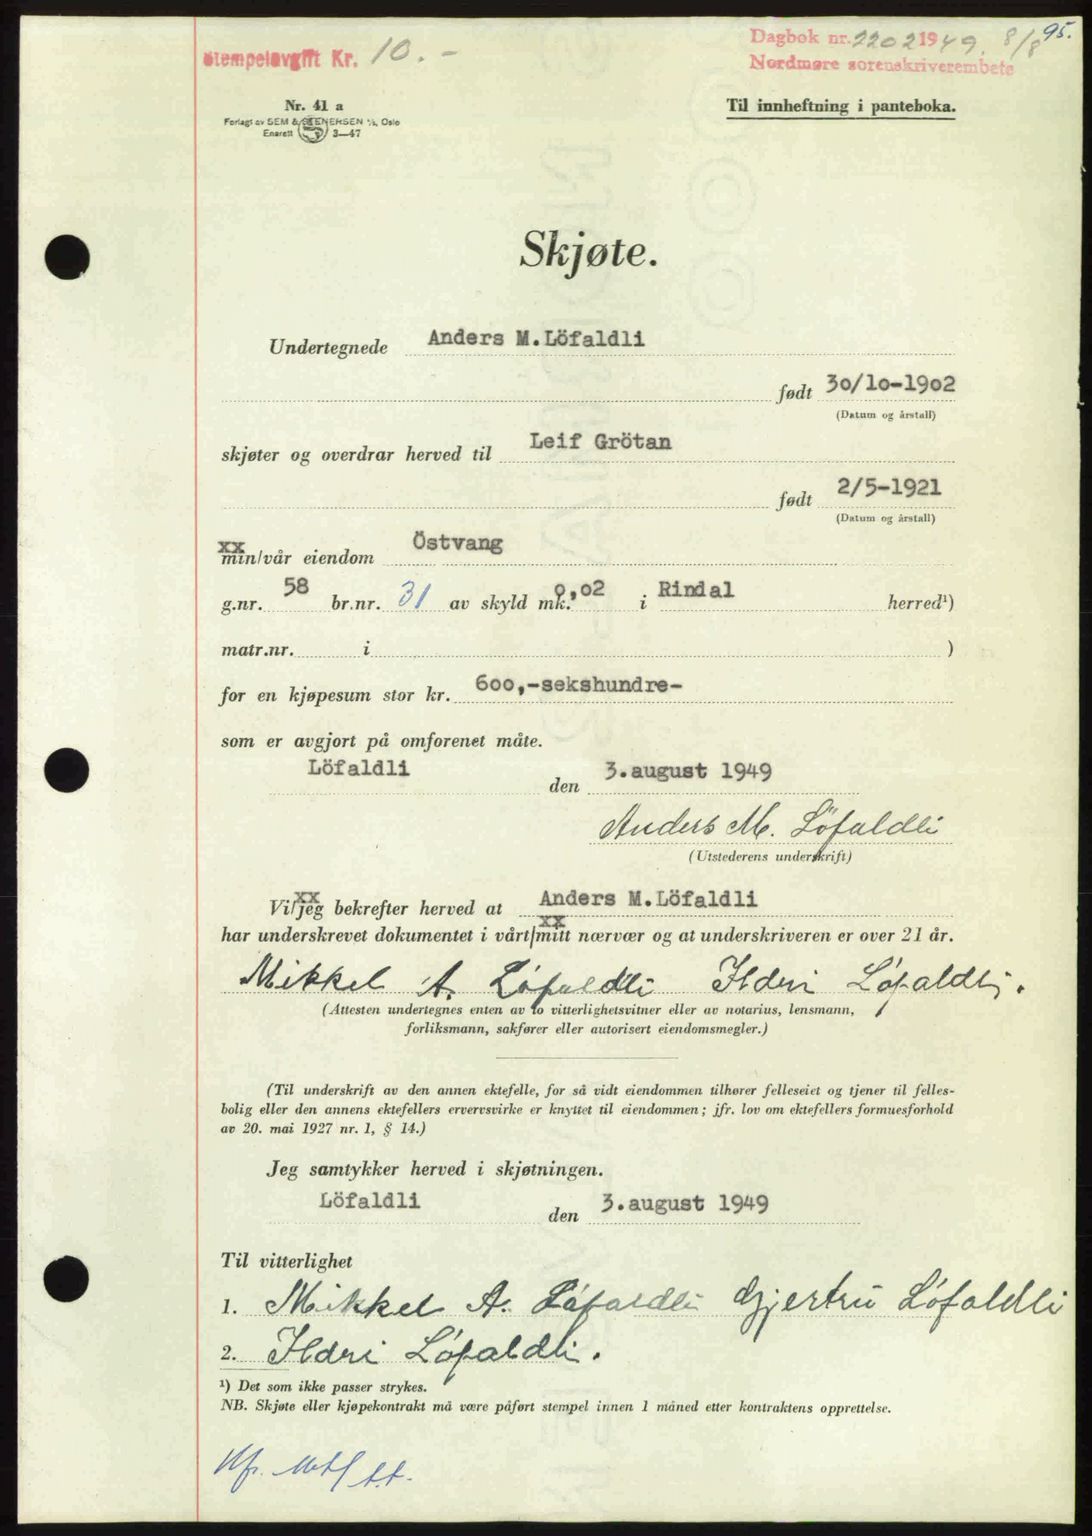 95.
Dagbok nr. 2202 1949. 8/8
Stempelavgift Kr. 10.-
Nordmøre sorenskriverembete
Nr. 41 a
Til innheftning i panteboka.
Forlagt av SEM & STENERSEN A/S, Oslo
Enerett 3-47
Skjøte.
Undertegnede Anders M.Löfaldli
født 30/10-1902
(Datum og årstall)
skjøter og overdrar herved til Leif Grötan
født 2/5-1921
(Datum og årstall)
xx
min/vår eiendom Östvang
g.nr. 58 br.nr. 31 av skyld mk. 0,02 i Rindal herred¹)
matr.nr. i )
for en kjøpesum stor kr. 600,-sekshundre-
som er avgjort på omforenet måte.
Löfaldli den 3.august 1949
Anders M. Löfaldli
(Utstederens underskrift)
xx
Vi/jeg bekrefter herved at Anders M.Löfaldli
xx
har underskrevet dokumentet i vårt/mitt nærvær og at underskriveren er over 21 år.
Mikkel A. Löfaldli Ildri Löfaldli.
(Attesten undertegnes enten av to vitterlighetsvitner eller av notarius, lensmann,
forliksmann, sakfører eller autorisert eiendomsmegler.)
(Til underskrift av den annen ektefelle, for så vidt eiendommen tilhører felleseiet og tjener til felles-
bolig eller den annens ektefellers ervervsvirke er knyttet til eiendommen; jfr. lov om ektefellers formuesforhold
av 20. mai 1927 nr. 1, § 14.)
Jeg samtykker herved i skjøtningen.
Löfaldli den 3.august 1949
Til vitterlighet
1. Mikkel A. Löfaldli Gjertru Löfaldli
2. Ildri Löfaldli.
¹) Det som ikke passer strykes.
NB. Skjøte eller kjøpekontrakt må være påført stempel innen 1 måned etter kontraktens opprettelse.